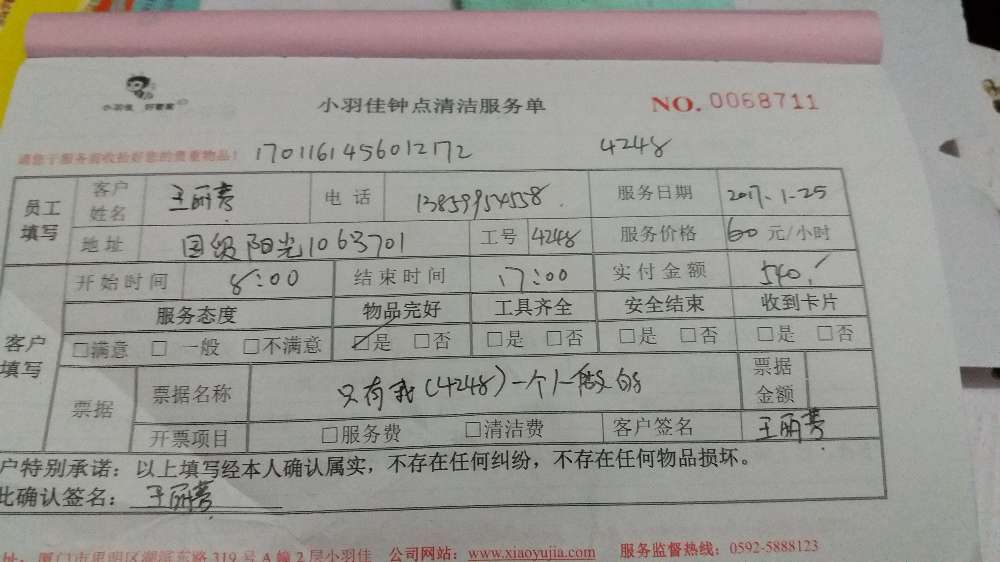 小羽佳 好管家
小羽佳钟点清洁服务单 NO. 0068711
请您于服务前收拾好您的贵重物品! 1701161456012172 4248
员工填写 客户姓名 王丽菁 电话 13859954558 服务日期 2017.1-25
地址 国贸阳光1063701 工号 4248 服务价格 60 元/小时
客户填写 开始时间 8:00 结束时间 17:00 实付金额 540.
服务态度 物品完好 工具齐全 安全结束 收到卡片
□满意 □一般 □不满意 ☑是 □否 □是 □否 □是 □否 □是 □否
票据 票据名称 只有我(4248)一个人做的 票据金额
开票项目 □服务费 □清洁费 客户签名 王丽菁
户特别承诺:以上填写经本人确认属实,不存在任何纠纷,不存在任何物品损坏。
此确认签名: 王丽菁
址:厦门市思明区湖滨东路319号A幢2层小羽佳 公司网站:www.xiaoyujia.com 服务监督热线:0592-5888123